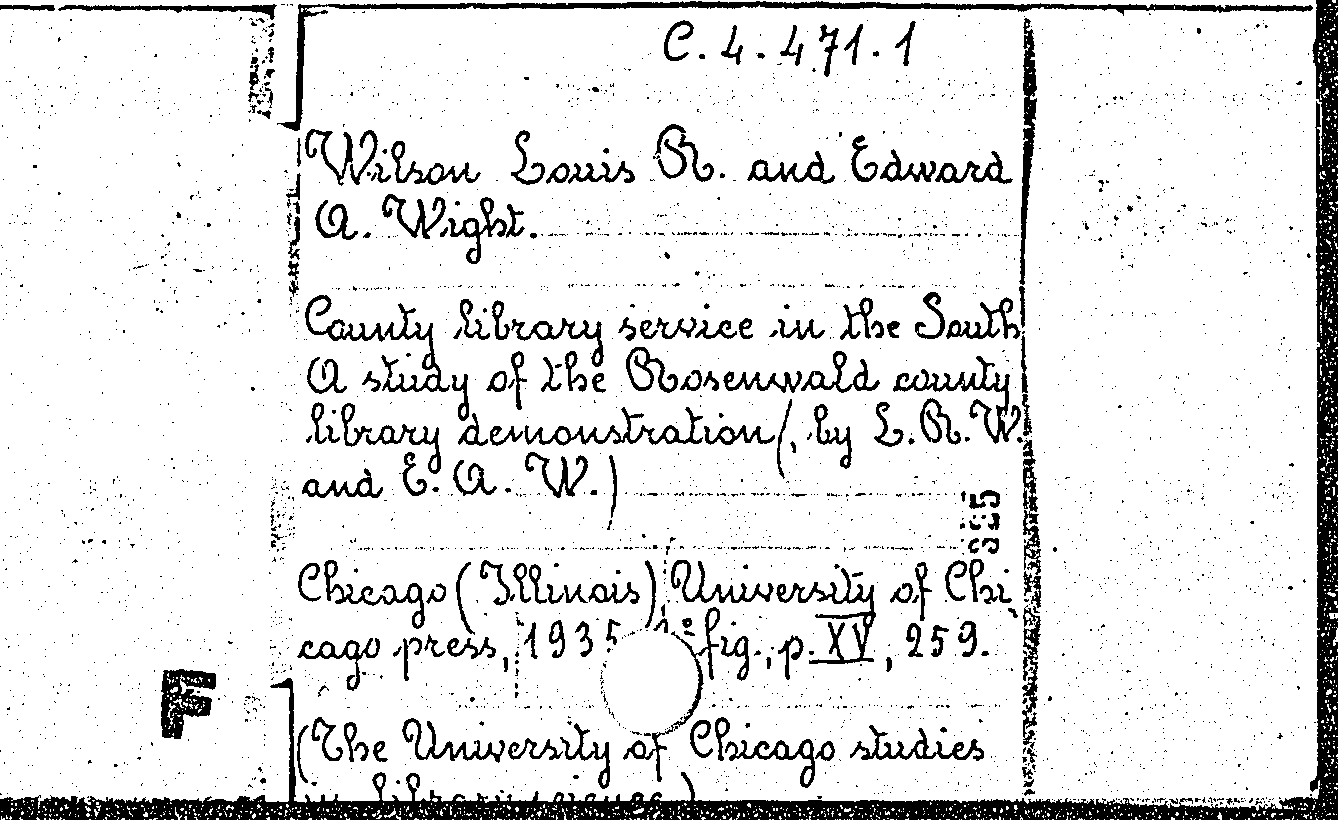 C. 4. 471. 1
Wilson Louis R. and Edward
A. Wight.
County library service in the South
A study of the Rosenwald county
library demonstration(, by L. R. W.
and E. A. W.)
385
Chicago (Illinois), University of Chi
cago press, 1935 fig., p. XV, 259.
F
(The University of Chicago studies
in library science.)